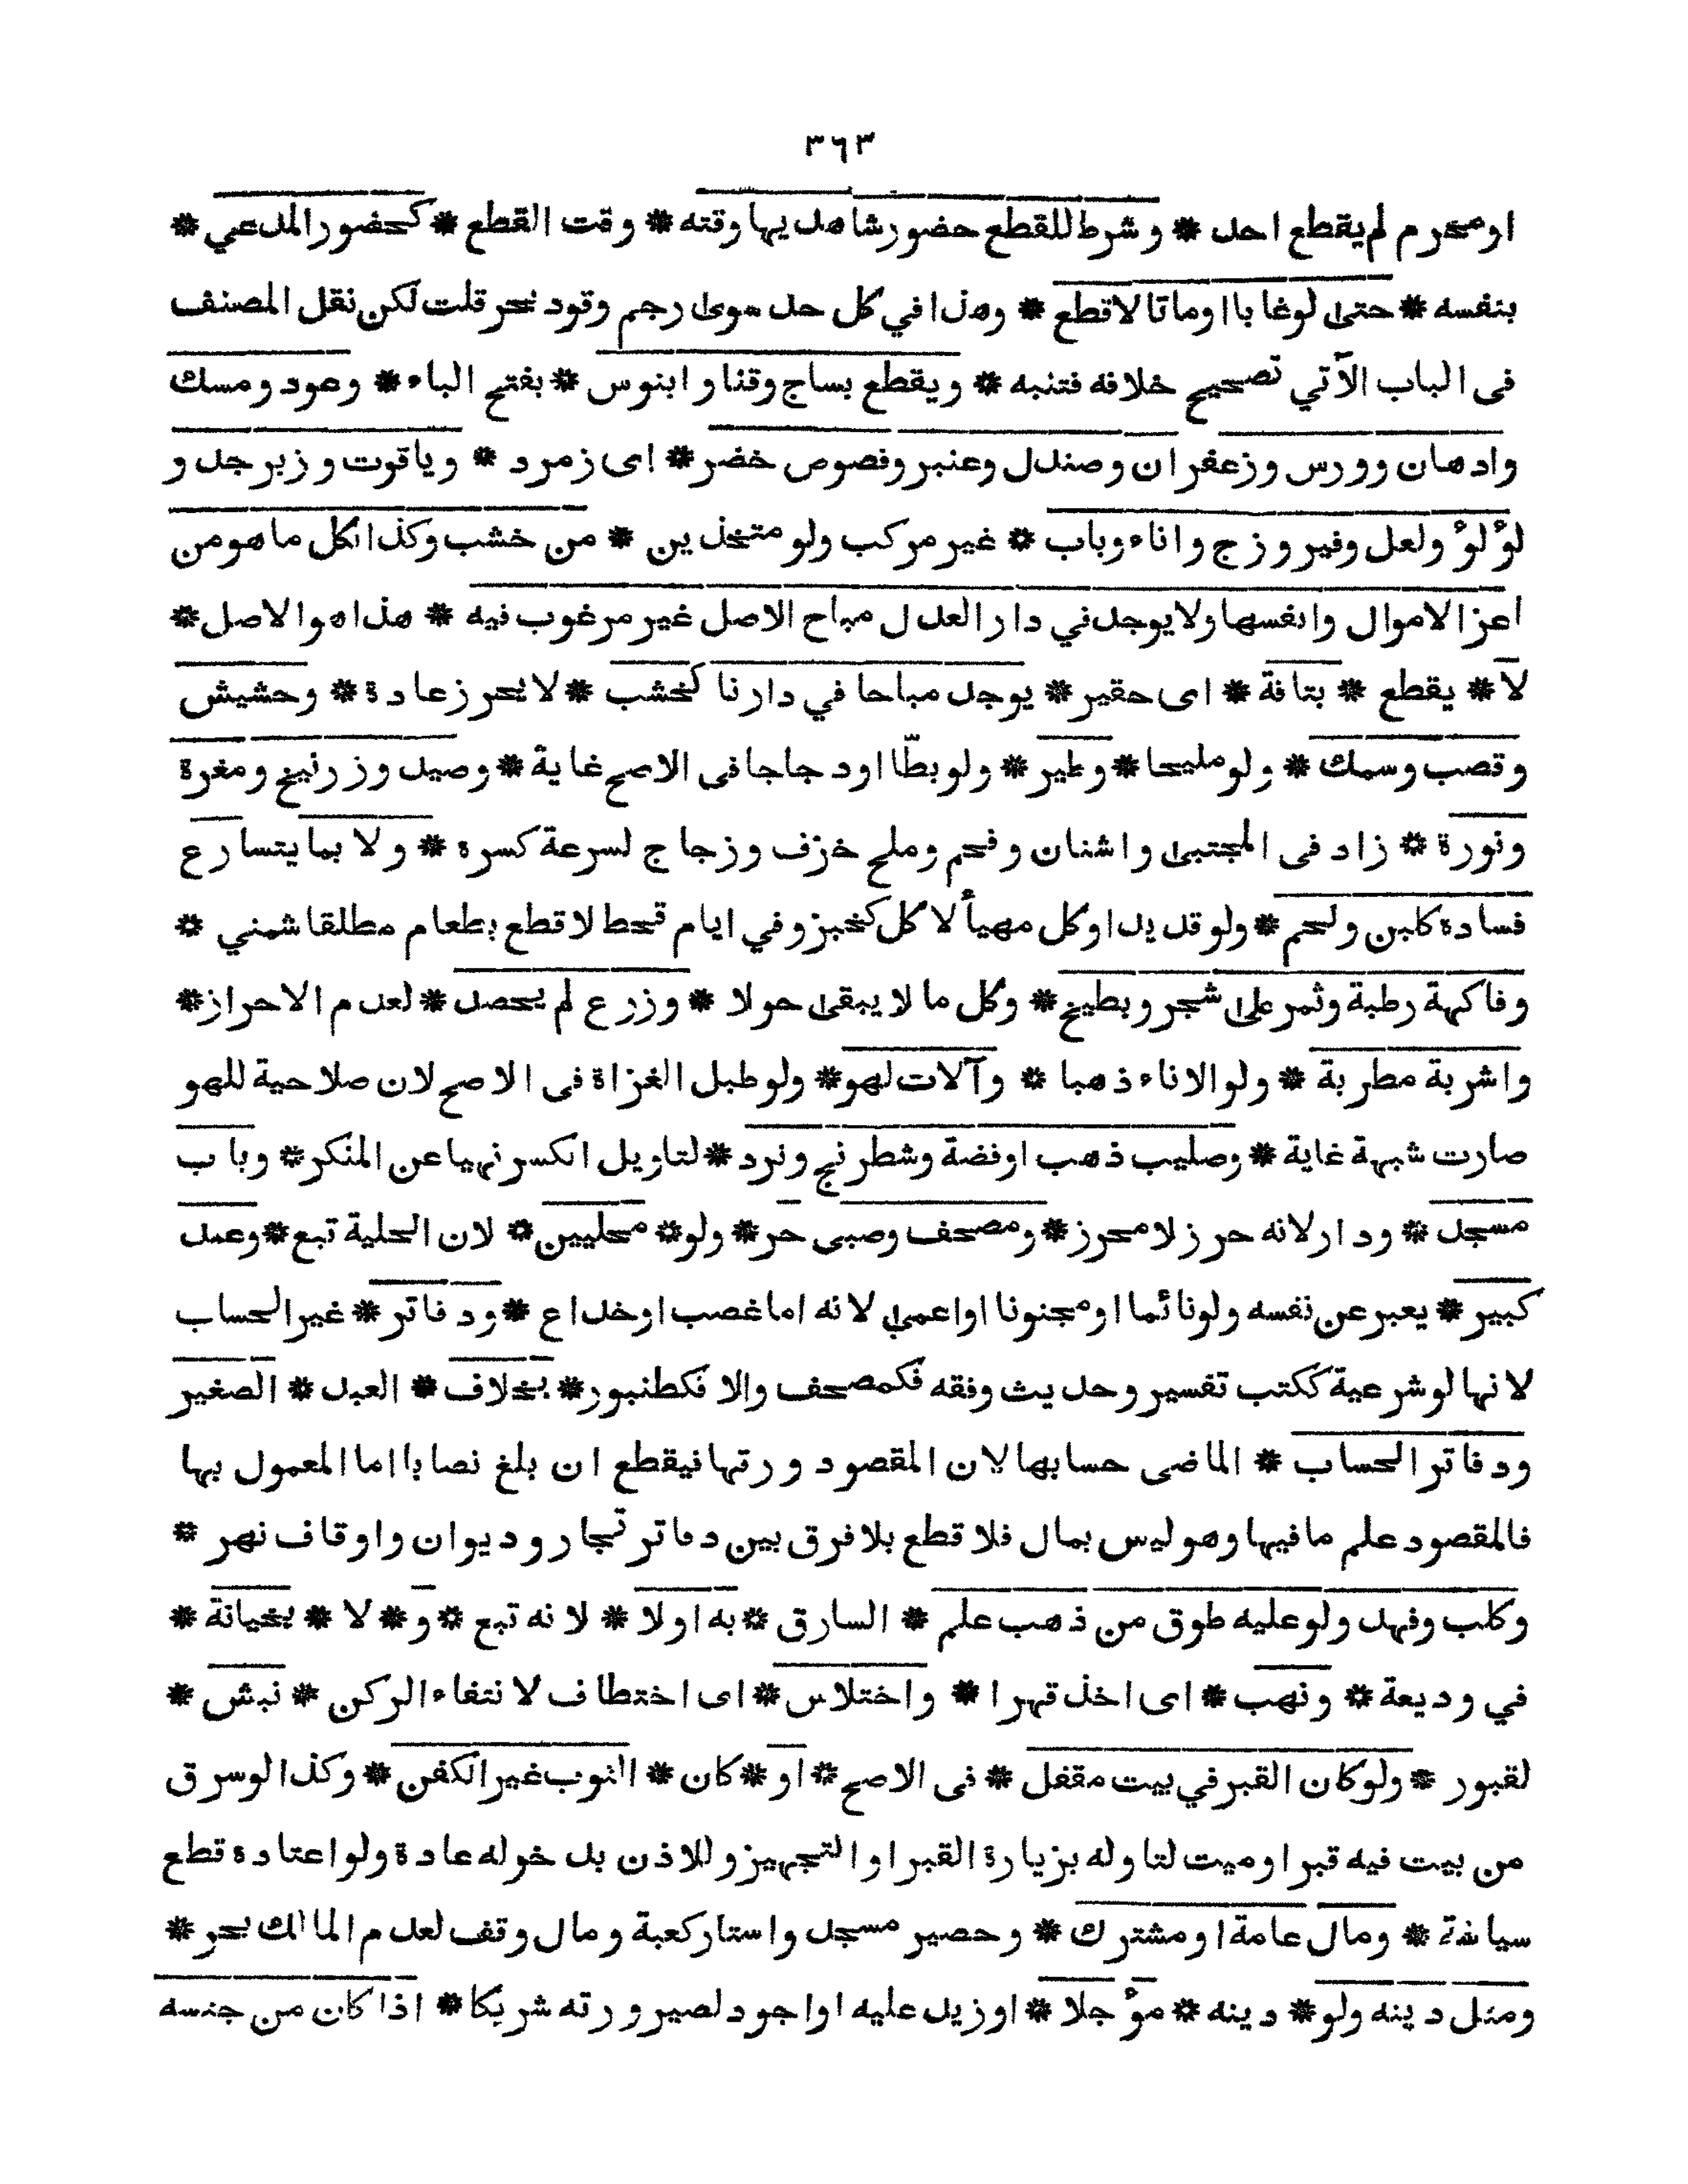 ٣٦٣
او محرم لم يقطع احد * وشرط للقطع حضور شاهديها وقته * وقت القطع * كحضور المدعي *
بنفسه * حتى لوغابا اوماتا لاقطع * وهذا في كل حد سوى رجم وقود بحر قلت لكن نقل المصنف
فى الباب الآتي تصحيح خلافه فتنبه * ويقطع بساج وقنا وابنوس * بفتح الباء * وعود ومسك
وادهان وورس وزعفران وصندل وعنبر وفصوص خضر * اى زمرد * وياقوت وزبرجد و
لؤلؤ ولعل وفيروزج واناء وباب * غير مركب ولو متخذين * من خشب وكذا كل ما هو من
اعز الاموال وانفسها ولا يوجد في دار العدل مباح الاصل غير مرغوب فيه * هذا هو الاصل *
لا * يقطع * بتافة * اى حقير * يوجد مباحا في دارنا كخشب * لا يحرز عادة * وحشيش
وقصب وسمك * ولو مليحا * وطير * ولو بطّا اود جاجا فى الاصح غاية * وصيد وزرنيخ ومغرة
ونورة * زاد فى المجتبى واشنان وفحم وملح خزف وزجاج لسرعة كسره * ولا بما يتسارع
فساده كلبن ولحم * ولو قديدا وكل مهيأ لا كل كخبز وفي ايام قحط لاقطع بطعام مطلقا شمني *
وفاكهة رطبة وثمر على شجر وبطيخ * وكل ما لا يبقى حولا * وزرع لم يحصد * لعدم الاحراز *
واشربة مطربة * ولو الاناء ذهبا * وآلات لهو * ولو طبل الغزاة فى الاصح لان صلاحية للهو
صارت شبهة غاية * وصليب ذهب اوفضة وشطرنج ونرد * لتاويل الكسر نهيا عن المنكر * وباب
مسجد * ودار لانه حرز لا محرز * ومصحف وصبى حر * ولو * محليين * لان الحلية تبع * وعبد
كبير * يعبر عن نفسه ولو نائما او مجنونا او اعمى لانه اما غصب اوخداع * ودفاتر * غير الحساب
لانها لو شرعية ككتب تفسير وحديث وفقه فكمصحف والا فكطنبور * بخلاف * العبد * الصغير
ودفاتر الحساب * الماضى حسابها لان المقصود ورتها فيقطع ان بلغ نصابا اما المعمول بها
فالمقصود علم ما فيها وهو ليس بمال فلا قطع بلا فرق بين دفاتر تجار وديوان واوقاف نهر *
وكلب وفهد ولو عليه طوق من ذهب علم * السارق * به اولا * لانه تبع * و * لا * بخيانة *
في وديعة * ونهب * اى اخذ قهرا * واختلاس * اى اختطاف لانتفاء الركن * نبش *
لقبور * ولو كان القبر في بيت مقفل * فى الاصح * او * كان * الثوب غير الكفن * وكذا لو سرق
من بيت فيه قبر اوميت لتاوله بزيارة القبر او التجهيز وللاذن بدخوله عادة ولو اعتاده قطع
سياسة * ومال عامة او مشترك * وحصير مسجد واستار كعبة ومال وقف لعدم المالك بحر *
ومثل دينه ولو * دينه * مؤجلا * اوزيد عليه اواجود لصيرورته شريكا * اذا كان من جنسه